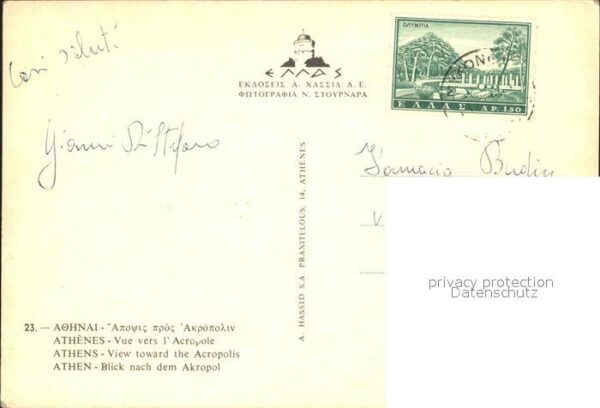 Cari saluti
ΕΛΛΑΣ
ΕΚΔΟΣΕΙΣ Α. ΧΑΣΣΙΔ Α.Ε.
ΦΩΤΟΓΡΑΦΙΑ Ν. ΣΤΟΥΡΝΑΡΑ
ΟΛΥΜΠΙΑ
ΕΛΛΑΣ ΔΡ. 1.50
Gianni Di Stefano
Farmacia
A. HASSID S.A. PRAXITELOUS, 14, ATHÈNES
privacy protection
Datenschutz
23. — ΑΘΗΝΑΙ - Ἄποψις πρός Ἀκρόπολιν
ATHÈNES - Vue vers l' Acropole
ATHENS - View toward the Acropolis
ATHEN - Blick nach dem Akropol